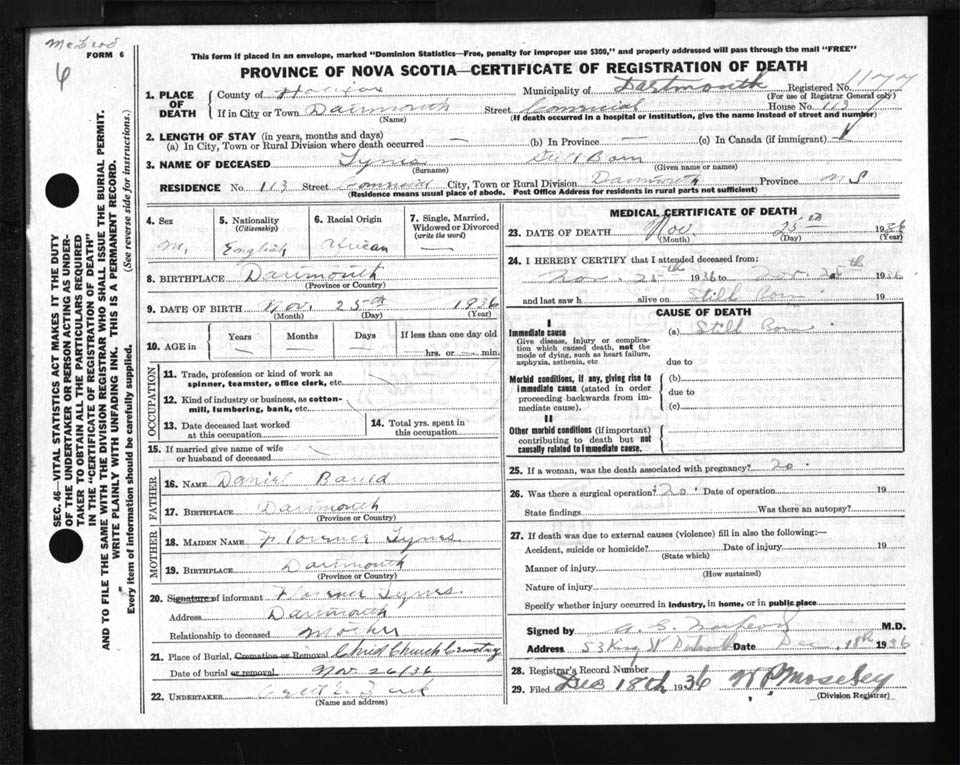 McLeod
FORM 6
6
This form if placed in an envelope, marked "Dominion Statistics—Free, penalty for improper use $300," and properly addressed will pass through the mail "FREE"
PROVINCE OF NOVA SCOTIA—CERTIFICATE OF REGISTRATION OF DEATH
1. PLACE OF DEATH
County of Halifax Municipality of Dartmouth Registered No. 1177
(For use of Registrar General only)
If in City or Town Dartmouth Street Commercial House No. 113
(Name) (If death occurred in a hospital or institution, give the name instead of street and number)
2. LENGTH OF STAY (in years, months and days)
(a) In City, Town or Rural Division where death occurred — (b) In Province — (c) In Canada (if immigrant)
3. NAME OF DECEASED Tynes Still Born
(Surname) (Given name or names)
RESIDENCE No. 113 Street Commercial City, Town or Rural Division Dartmouth Province N S
(Residence means usual place of abode. Post Office Address for residents in rural parts not sufficient)
SEC. 46—VITAL STATISTICS ACT MAKES IT THE DUTY
OF THE UNDERTAKER OR PERSON ACTING AS UNDER-
TAKER TO OBTAIN ALL THE PARTICULARS REQUIRED
IN THE "CERTIFICATE OF REGISTRATION OF DEATH"
AND TO FILE THE SAME WITH THE DIVISION REGISTRAR WHO SHALL ISSUE THE BURIAL PERMIT.
WRITE PLAINLY WITH UNFADING INK. THIS IS A PERMANENT RECORD.
Every item of information should be carefully supplied. (See reverse side for instructions.)
4. Sex
M.
5. Nationality
(Citizenship)
English
6. Racial Origin
African
7. Single, Married,
Widowed or Divorced
(write the word)
—
8. BIRTHPLACE Dartmouth
(Province or Country)
9. DATE OF BIRTH Nov. 25th 1936
(Month) (Day) (Year)
10. AGE in
Years Months Days If less than one day old
hrs. or min.
OCCUPATION
11. Trade, profession or kind of work as
spinner, teamster, office clerk, etc.
12. Kind of industry or business, as cotton-
mill, lumbering, bank, etc.
13. Date deceased last worked
at this occupation
14. Total yrs. spent in
this occupation
15. If married give name of wife
or husband of deceased
FATHER
16. NAME Daniel Bauld
17. BIRTHPLACE Dartmouth
(Province or Country)
MOTHER
18. MAIDEN NAME Tynes
19. BIRTHPLACE Dartmouth
(Province or Country)
20. Signature of informant Tynes
Address Dartmouth
Relationship to deceased Mother
21. Place of Burial, Cremation or Removal Christ Church Cemetery
Date of burial or removal Nov 26/36
22. UNDERTAKER
(Name and address)
MEDICAL CERTIFICATE OF DEATH
23. DATE OF DEATH Nov. 25th 1936
(Month) (Day) (Year)
24. I HEREBY CERTIFY that I attended deceased from:
Nov. 25th 1936 to Nov. 25th 1936
and last saw h alive on Still Born 19
CAUSE OF DEATH
I
Immediate cause
Give disease, injury or complica-
tion which caused death, not the
mode of dying, such as heart failure,
asphyxia, asthenia, etc.
(a) Still Born
due to
Morbid conditions, if any, giving rise to
immediate cause (stated in order
proceeding backwards from im-
mediate cause).
(b)
due to
(c)
II
Other morbid conditions (if important)
contributing to death but not
causally related to immediate cause.
25. If a woman, was the death associated with pregnancy? No.
26. Was there a surgical operation? No. Date of operation 19
State findings Was there an autopsy?
27. If death was due to external causes (violence) fill in also the following:—
Accident, suicide or homicide? Date of injury 19
(State which)
Manner of injury
(How sustained)
Nature of injury
Specify whether injury occurred in industry, in home, or in public place
Signed by M.D.
Address 53 King St Date Dec. 18th 1936
28. Registrar's Record Number
29. Filed Dec 18th 1936 W P Moseley
(Division Registrar)